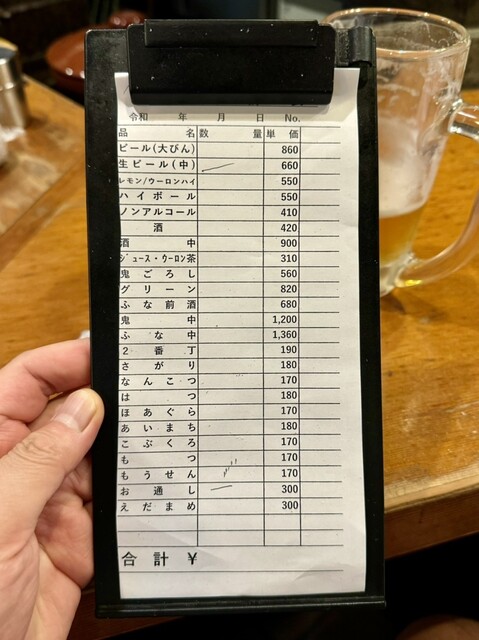 令和 年 月 日 No.
品 名 数 量 単 価
ビール(大びん) 860
生ビール(中) 660
レモン/ウーロンハイ 550
ハイボール 550
ノンアルコール 410
酒 420
酒 中 900
ジュース・ウーロン茶 310
鬼ごろし 560
グリーン 820
ふな前酒 680
鬼 中 1,200
ふな中 1,360
2番丁 190
さがり 180
なんこつ 170
はつ 180
ほあぐら 170
あいまち 180
こぶくろ 170
もつ 170
もうせん 170
お通し 300
えだまめ 300
合計¥